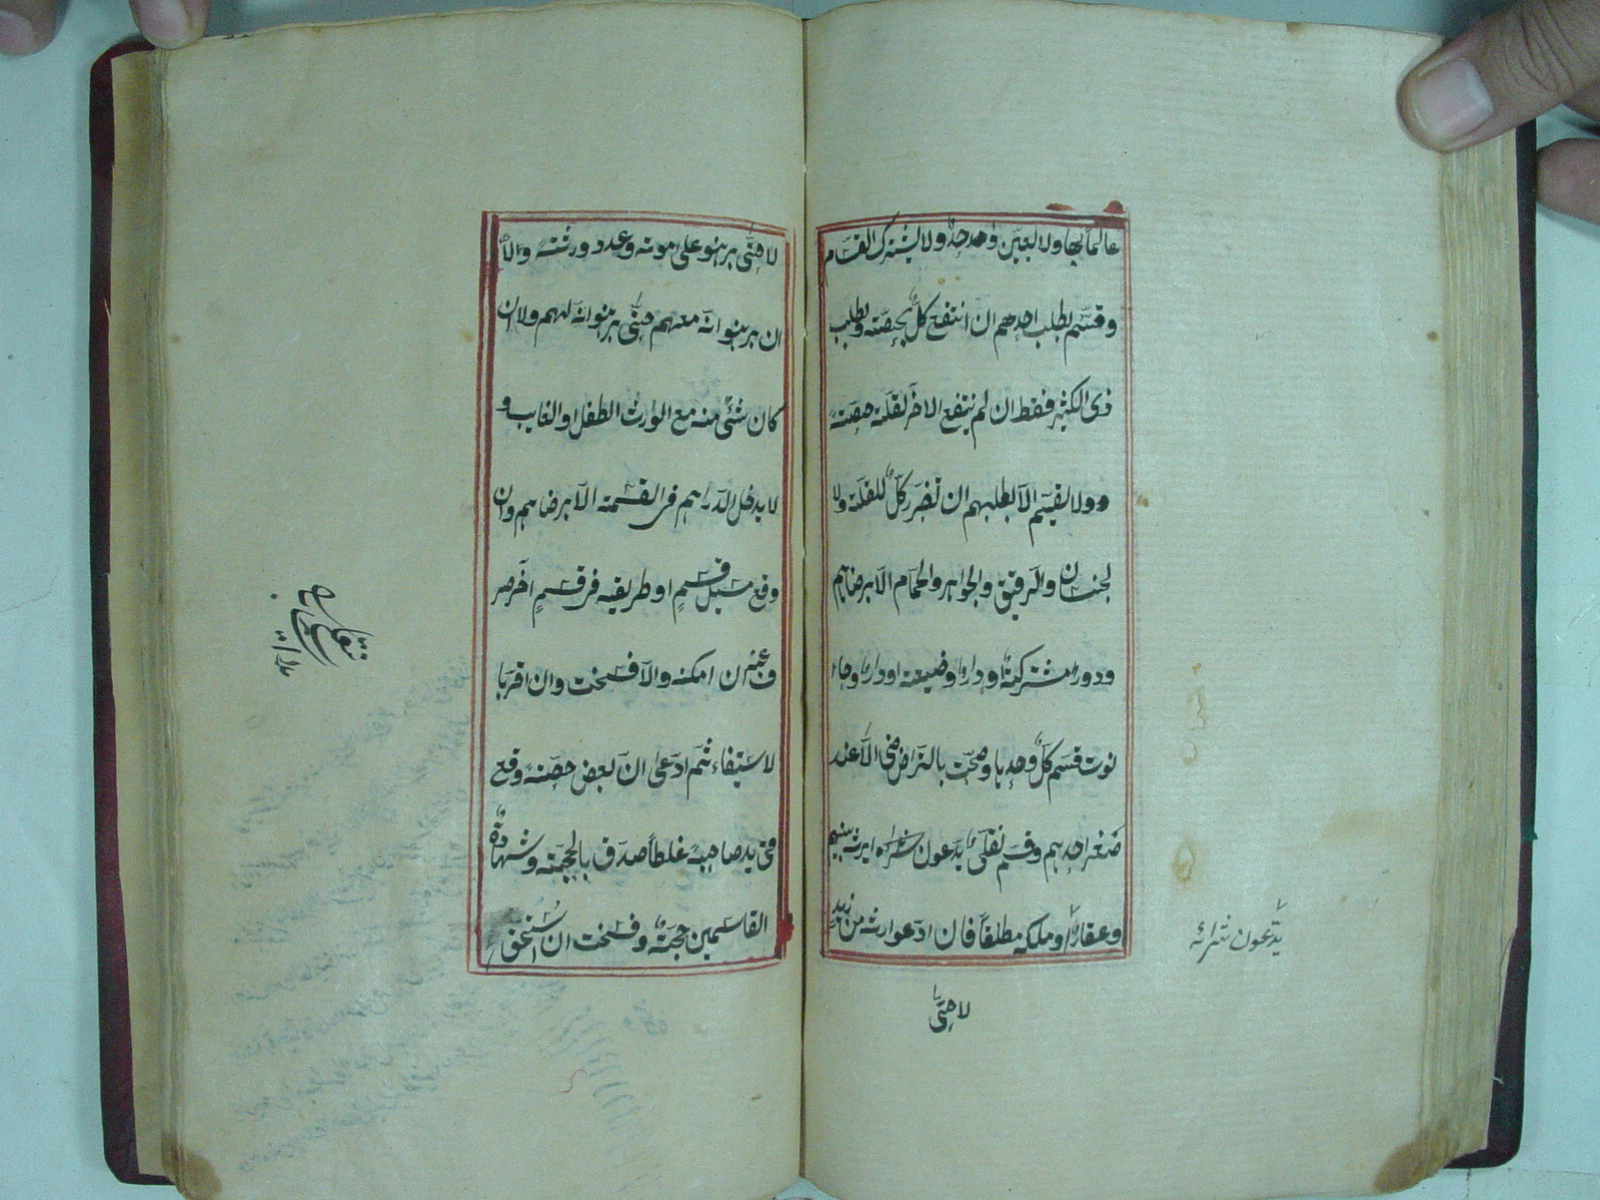 عالماً بها ولا يعيّن واحد جدٌ ولا يشترك القسّام
وقسّم بطلب احدهم ان انتفع كلٌ بحصّته وبطلب
ذى الكثير فقط ان لم ينتفع الاخر لقلة حصّته
وولا يقسّم الّا بطلبهم ان تضرّر كلٌ للقلّة ولا
لجنسان والرّقيق والجواهر والحمّام الّا برضاهم
ودور مشتركة اودار وضيعة اودار وحا
نوت قسم كلٌ وحدها وصحّت بالتراضى الّا عند
صغر احدهم وقسم نقلىّ يدّعون شراءه ارثه بينهم
وعقار او ملكه مطلقاً فان ادّعوا ارثه من زيد
لا حتّى
يدّعون شرائه
لا حتّى برهنوا على موته وعدد ورثته والا
ان برهنوا انّه معهم حتّى برهنوا انّه لهم ولا ان
كان شئ منه مع الوارث الطفل او الغايب و
لا يدخل الدّراهم فى القسمة الّا برضاهم وان
وقع مسيل قسمٍ او طريقه فى قسمٍ آخر صر
ف عنه ان امكنه والّا فسخت وان اقر با
لاستيفاء ثمّ ادّعى انّ بعض حصّته وقع
فى يد صاحبه غلطاً صدّق بالحجّة وشهادة
القاسمين حجّة وفسخت ان استحق